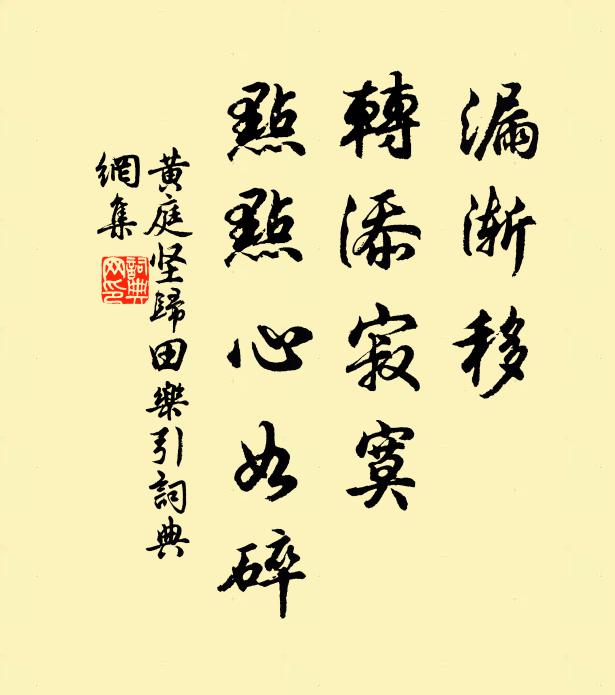 漏渐移
轉添寂寞
點點心如碎
黄庭坚歸田樂引詞典
網集
詞典
网印